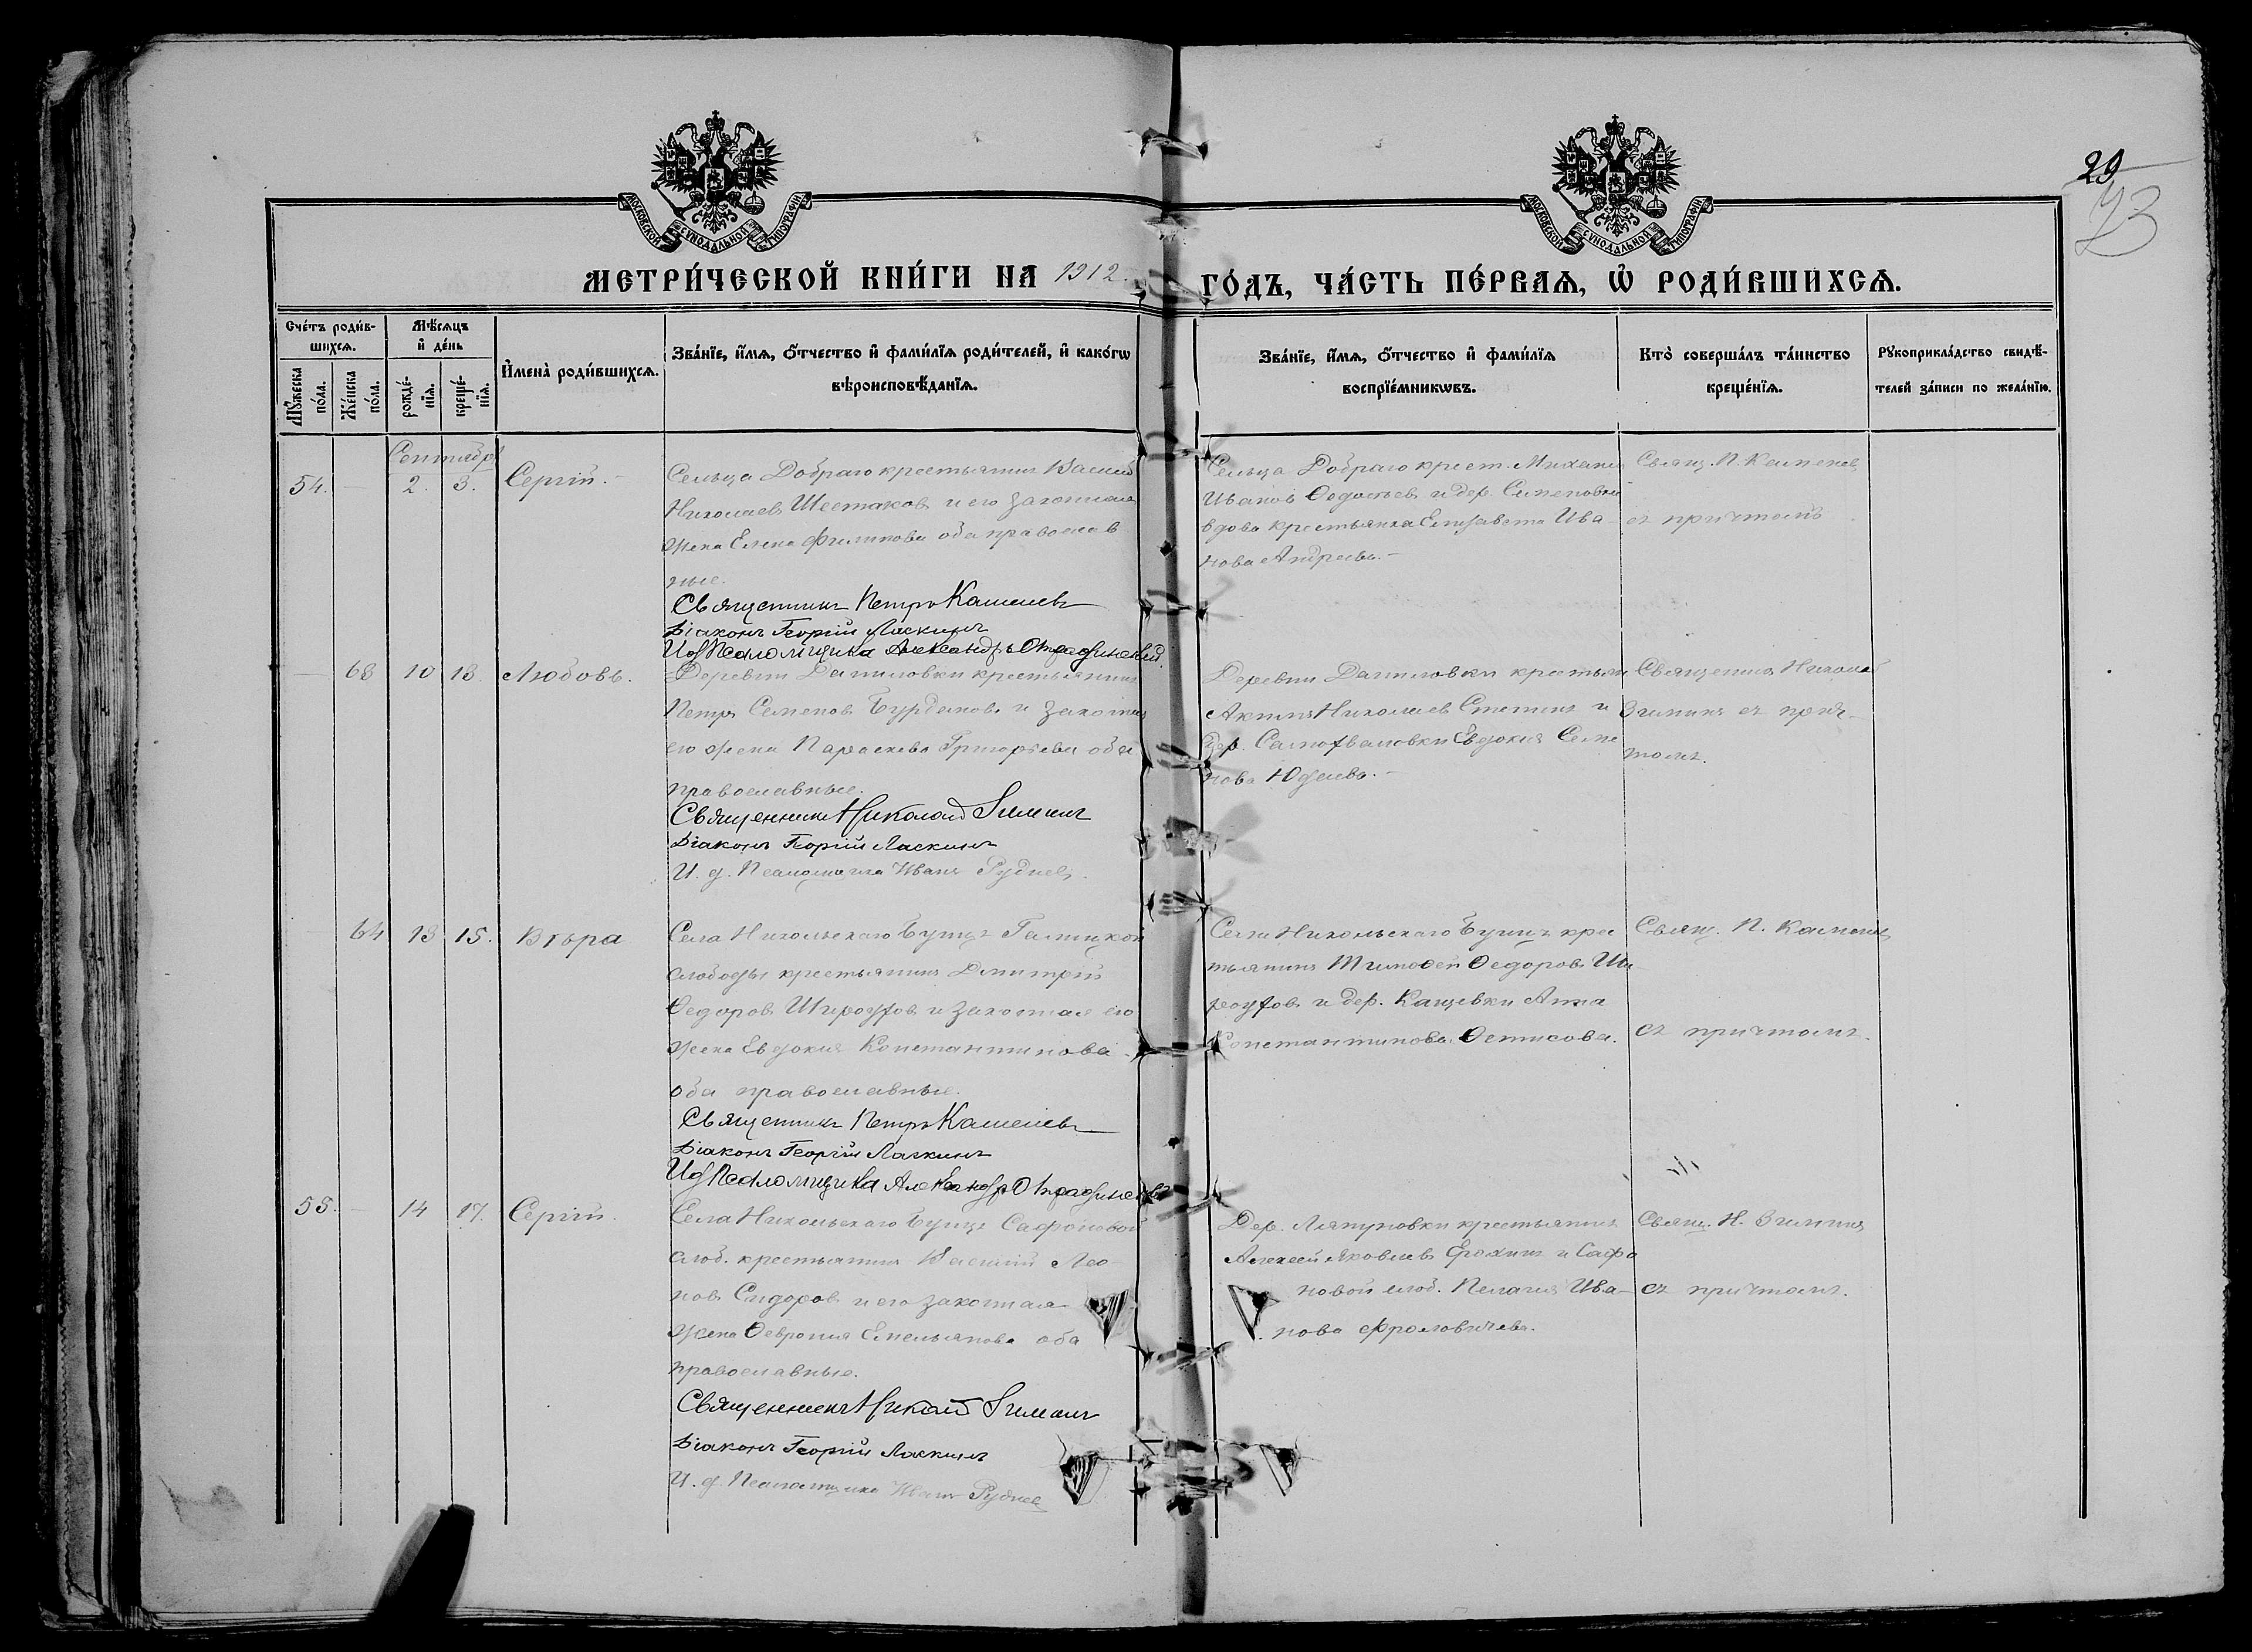 29
73
МОСКОВСКОЙ СѴНОДАЛЬНОЙ ТИПОГРАФІИ
МОСКОВСКОЙ СѴНОДАЛЬНОЙ ТИПОГРАФІИ
МЕТРИ́ЧЕСКОЙ КНИ́ГИ НА 1912. ГО́ДЪ, ЧА́СТЬ ПЕ́РВАѦ, Ѡ҆ РОДИ́ВШИХСѦ.
Сче́тъ роди́в-
шихсѧ.
Мꙋ́жеска по́ла.
Же́нска по́ла.
Мѣ́сѧцъ
и҆ де́нь
рожде́-
нїѧ.
креще́-
нїѧ.
И҆мена̀ роди́вшихсѧ.
Зва́нїе, и҆́мѧ, ѻ҆́тчество и҆ фами́лїѧ роди́телей, и҆ како́гѡ
вѣроисповѣ́данїѧ.
Зва́нїе, и҆́мѧ, ѻ҆́тчество и҆ фами́лїѧ
воспрїе́мникѡвъ.
Кто̀ соверша́лъ та́инство
креще́нїѧ.
Рꙋкоприкла́дство свидѣ́-
телей за́писи по жела́нїю.
Сентябрь
54. — 2. 3. Сергій. —
Сельца Добраго крестьянинъ Васил
Николаевъ Шестаковъ и его законная
жена Елена Филипова оба православ
ные.
Священникъ Петръ Каменевъ
Діаконъ Георгій Ласкинъ
Ид Псаломщика Александръ Отрадинскій
Сельца Добраго крест. Михаил
Ивановъ Ѳедосѣевъ и дер. Семеновки
вдова крестьянка Елизавета Ива-
нова Андреева. —
Свящ. П. Каменев
съ причтомъ
— 63 10 13. Любовь.
Деревни Даниловки крестьянинъ
Петръ Семеновъ Бурдановъ и законная
его жена Параскева Григорьева оба
православные.
Священникъ Николай Зиминъ
Діаконъ Георгій Ласкинъ
И. д. Псаломщика Иванъ Рудневъ.
Деревни Даниловки крестьян
Николаевъ и
дер. Евдокия Семе
нова
Священникъ Николай
Зиминъ съ прич-
томъ.
64 13 15. Вѣра
Села Никольскаго Галицкой
слободы крестьянинъ Димитрій
Ѳедоровъ и законная его
жена Евдокия Константинова
оба православные.
Священникъ Петръ Каменевъ
Діаконъ Георгій Ласкинъ
Ид Псаломщика Александръ Отрадинскій
Села Никольскаго крес
тьянинъ Тимоѳей Ѳедоровъ
и дер. Кащевки Анна
Константинова Ѳетисова.
Свящ. П. Каменев
съ причтомъ.
55. — 14 17. Сергій.
Села Никольскаго Сафоновой
слоб. крестьянинъ Василій Лео-
новъ Сидоровъ и его законная
жена Ѳеврония Емельянова оба
православные.
Священникъ Николай Зиминъ
Діаконъ Георгій Ласкинъ
И. д. Псаломщика Иванъ Руднев
Дер. Ляпуновки крестьянинъ
Алексей Яковлевъ Ерохинъ и Сафо
новой слоб. Пелагия Ива-
нова Фроловичева.
Свящ. Н. Зиминъ
съ причтомъ.